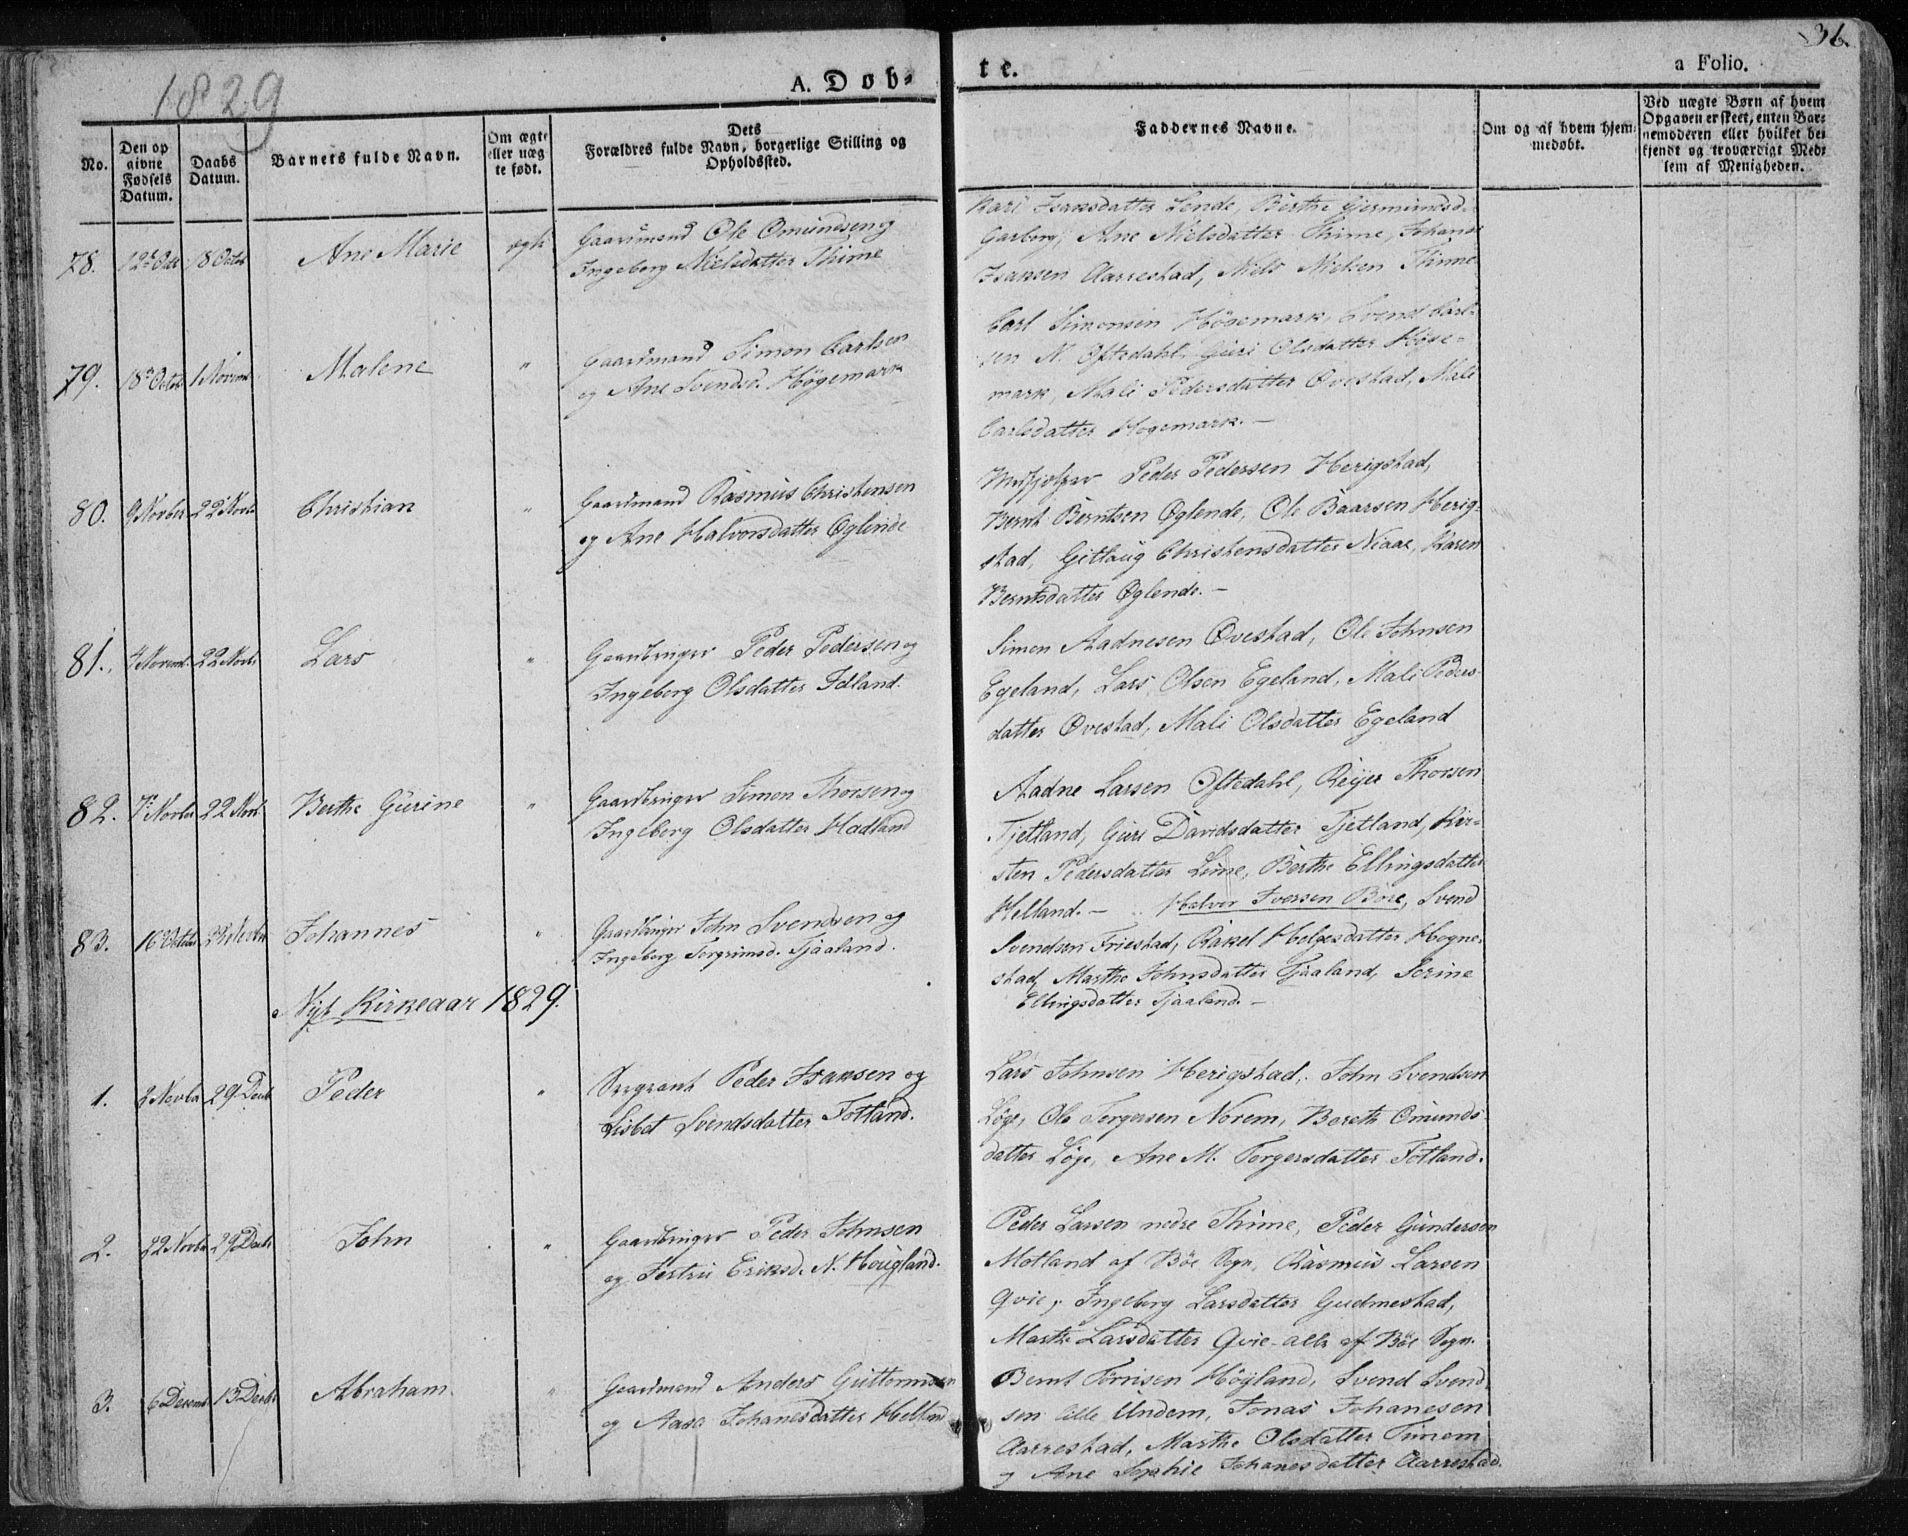 1829
A. Døb-
te.
36.
a Folio.
No.
Den op
givne
Fødsels
Datum.
Daabs
Datum.
Barnets fulde Navn.
Om ægte
eller uæg
te født.
Dets
Forældres fulde Navn, borgerlige Stilling og
Opholdssted.
Faddernes Navne.
Om og af hvem hjem-
medøbt.
Ved uægte Børn af hvem
Opgaven er skeet, enten Bar-
nemoderen eller hvilket be-
kjendt og troværdigt Med-
lem af Menigheden.
78. 12te Octr 18 Octbr Ane Marie ægte
Gaardmand Ole Omundsen og
Ingeborg Nielsdatter Thime
Kari Isaksdatter Lende, Birthe Gjermundsd.
Garborg, Ane Nielsdatter Thime, Johanes
Isaksen Aarrestad, Niels Nielsen Thime
79. 18de Octob 1 Novemb Malene "
Gaardmand Simon Carlsen
og Ane Svendsd. Høgemark
Carl Simonsen Høgemark, Svend Carl-
sen N. Oftedahl, Guri Olsdatter Høge-
mark, Mali Pedersdatter Ovestad, Mali
Carlsdatter Høgemark. —
80. 9 Novber 22 Novb. Christian "
Gaardmand Rasmus Christensen
og Ane Halvorsdatter Øglende
Peder Pedersen Herigstad,
Bernt Berntsen Øglende, Ole Baarsen Herig-
stad, Gitlaug Christensdatter Niaae, Karen
Berntsdatter Øglende. —
81. 4 Novemb. 22 Novbr Lars "
Gaardbruger Peder Pedersen og
Ingeborg Olsdatter Idland.
Simon Aadnesen Ovestad, Ole Johnsen
Egeland, Lars Olsen Egeland, Mali Peders-
datter Ovestad, Mali Olsdatter Egeland
82. 7de Novbr 22 Novb. Berthe Gurine "
Gaardbruger Simon Thorsen og
Ingeborg Olsdatter Hadland
Aadne Larsen Oftedahl, Reijer Thorsen
Tjetland, Guri Davidsdatter Tjetland, Kir-
sten Pedersdatter Lime, Berthe Ellingsdatter
Helland. —
83. 16 Octbr Novbr Johannes "
Gaardbruger John Svendsen og
Ingeborg Torgrimsd. Tjaaland.
Halvor Iversen Böre, Svend
Svendsen Friestad, Rakel Helgesdatter Hogne-
stad, Marthe Johnsdatter Tjaaland, Serine
Ellingsdatter Tjaaland. —
Nyt Kirkeaar 1829.
1. 2 Novbr 29 Decb Peder "
Sergeant Peder Isaksen og
Lisbet Svendsdatter Fotland.
Lars Johnsen Herigstad, John Svendsen
Löge, Ole Torgersen Norem, Bereth Omunds-
datter Löge, Ane M. Torgersdatter Fotland.
2. 22 Novbr 29 Decbr John "
Gaardbruger Peder Johnsen
og Jertru Eriksd. N. Hougland.
Peder Larsen nedre Thime, Peder Gundersen
Motland af Böe Sogn, Rasmus Larsen
Qvie, Ingeborg Larsdatter Gudmestad,
Marthe Larsdatter Qvie alle af Böe Sogn.
3. 6 Decemb 13 Decbr Abraham. "
Gaardmand Anders Guttormsen
og Aasa Johanesdatter Helland
Bernt Tönisen Höyland, Svend Svend-
sen lille Undem, Jonas Johanesen
Aarrestad, Marthe Olsdatter Timem
og Ane Sophie Johanesdatter Aarrestad.